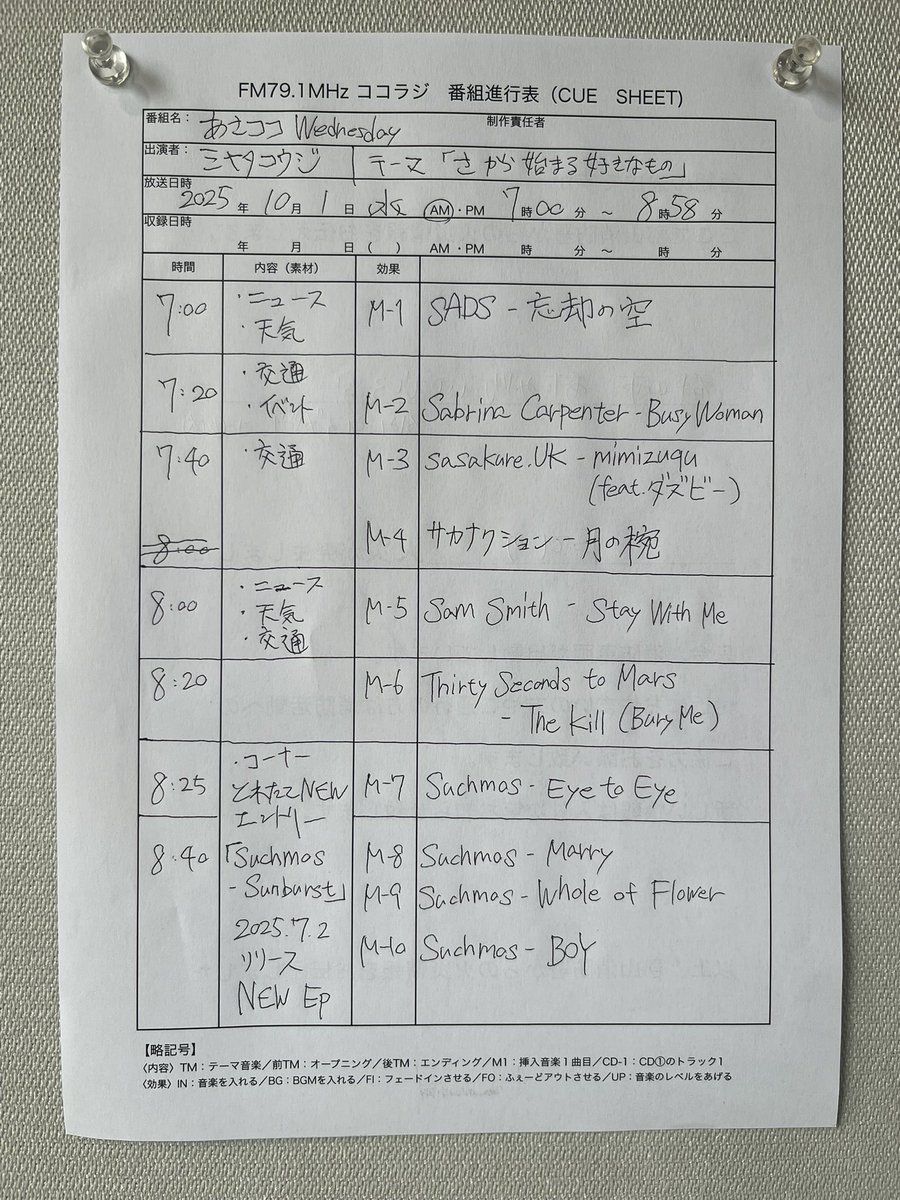 FM79.1MHz ココラジ 番組進行表（CUE SHEET)
番組名： あさココ Wednesday 制作責任者
出演者： ミヤタコウジ テーマ「さから始まる好きなもの」
放送日時
2025年 10月 1日 水 AM・PM 7時00分 ～ 8時58分
収録日時
年 月 日（ ） AM・PM 時 分 ～ 時 分
時間 内容（素材） 効果
7:00 ・ニュース M-1 SADS - 忘却の空
・天気
・交通
7:20 ・イベント M-2 Sabrina Carpenter - Busy Woman
7:40 ・交通 M-3 sasakure.UK - mimizuqu
(feat.ダズビー)
8:00 M-4 サカナクション - 月の椀
8:00 ・ニュース M-5 Sam Smith - Stay With Me
・天気
・交通
8:20 M-6 Thirty Seconds to Mars
- The Kill (Bury Me)
・コーナー
8:25 とれたてNEW M-7 Suchmos - Eye to Eye
エントリー
8:40 「Suchmos M-8 Suchmos - Marry
- Sunburst」 M-9 Suchmos - Whole of Flower
2025.7.2 M-10 Suchmos - BOY
リリース
NEW Ep
【略記号】
〈内容〉TM：テーマ音楽／前TM：オープニング／後TM：エンディング／M1：挿入音楽１曲目／CD-1：CD①のトラック1
〈効果〉IN：音楽を入れる／BG：BGMを入れる／FI：フェードインさせる／FO：ふぇーどアウトさせる／UP：音楽のレベルをあげる